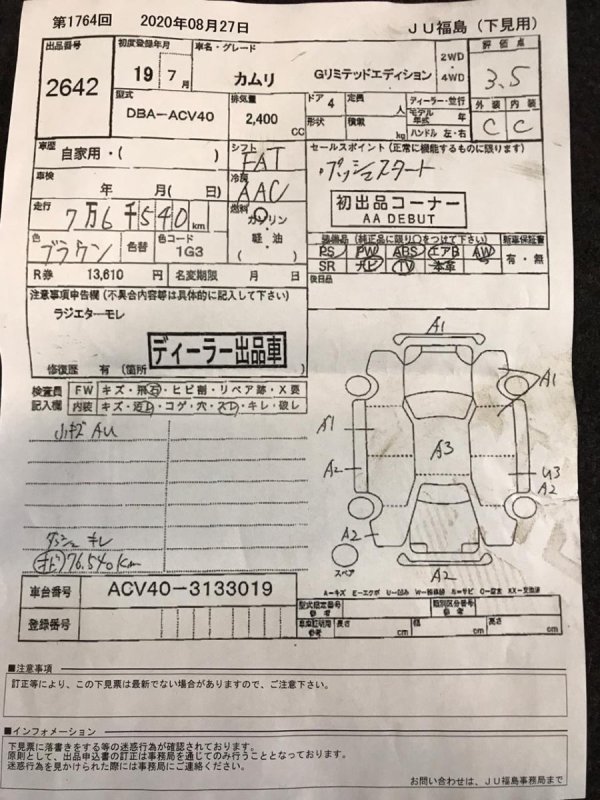 第1764回 2020年08月27日 JU福島（下見用）
出品番号 初度登録年月 車名・グレード 2WD 4WD 評価点
2642 19年 7月 カムリ Gリミテッドエディション 3.5
型式 排気量 ドア 4 定員 人 ディーラー・並行 外装 内装
DBA-ACV40 2,400 CC 形状 積載 kg モデル年式 年 C C
ハンドル 左・右
車歴 自家用・( ) シフト FAT セールスポイント（正常に機能するものに限ります）
車検 年 月( 日) 冷房 AAC プッシュスタート
走行 7万6千540km 燃料 ガソリン・軽油( ) 初出品コーナー
AA DEBUT
色 ブラウン 色替 色コード 1G3
装備品（純正品に限り○をつけて下さい） 新車保証書
PS PW ABS エアB AW 有・無
SR ナビ TV 本革
R券 13,610 円 名変期限 月 日 後日品
注意事項申告欄（不具合内容等は具体的に記入して下さい）
ラジエターモレ
ディーラー出品車
修復歴 有（箇所
検査員記入欄 FW キズ・飛石・ヒビ割・リペア跡・X要
内装 キズ・コゲ・穴・キレ・破レ
小キズ AU
A1
A1
A1
A3
A2
U3
A2
A2
A2
スペア
ダッシュ キレ
76.540km
車台番号 ACV40-3133019
登録番号
A-キズ E-エクボ U-凹み
型式指定番号 参考 類別区分番号 参考
車庫証明用 参考 長さ cm 幅 cm 高さ cm
■注意事項
訂正等により、この下見票は最新でない場合がありますので、ご注意下さい。
■インフォメーション
下見票に落書きをする等の迷惑行為が確認されております。
原則として、出品申込書の訂正は事務局を通じてのみ行うこととなっております。
迷惑行為を見かけられた際には事務局にご連絡ください。
お問い合わせは、JU福島事務局まで